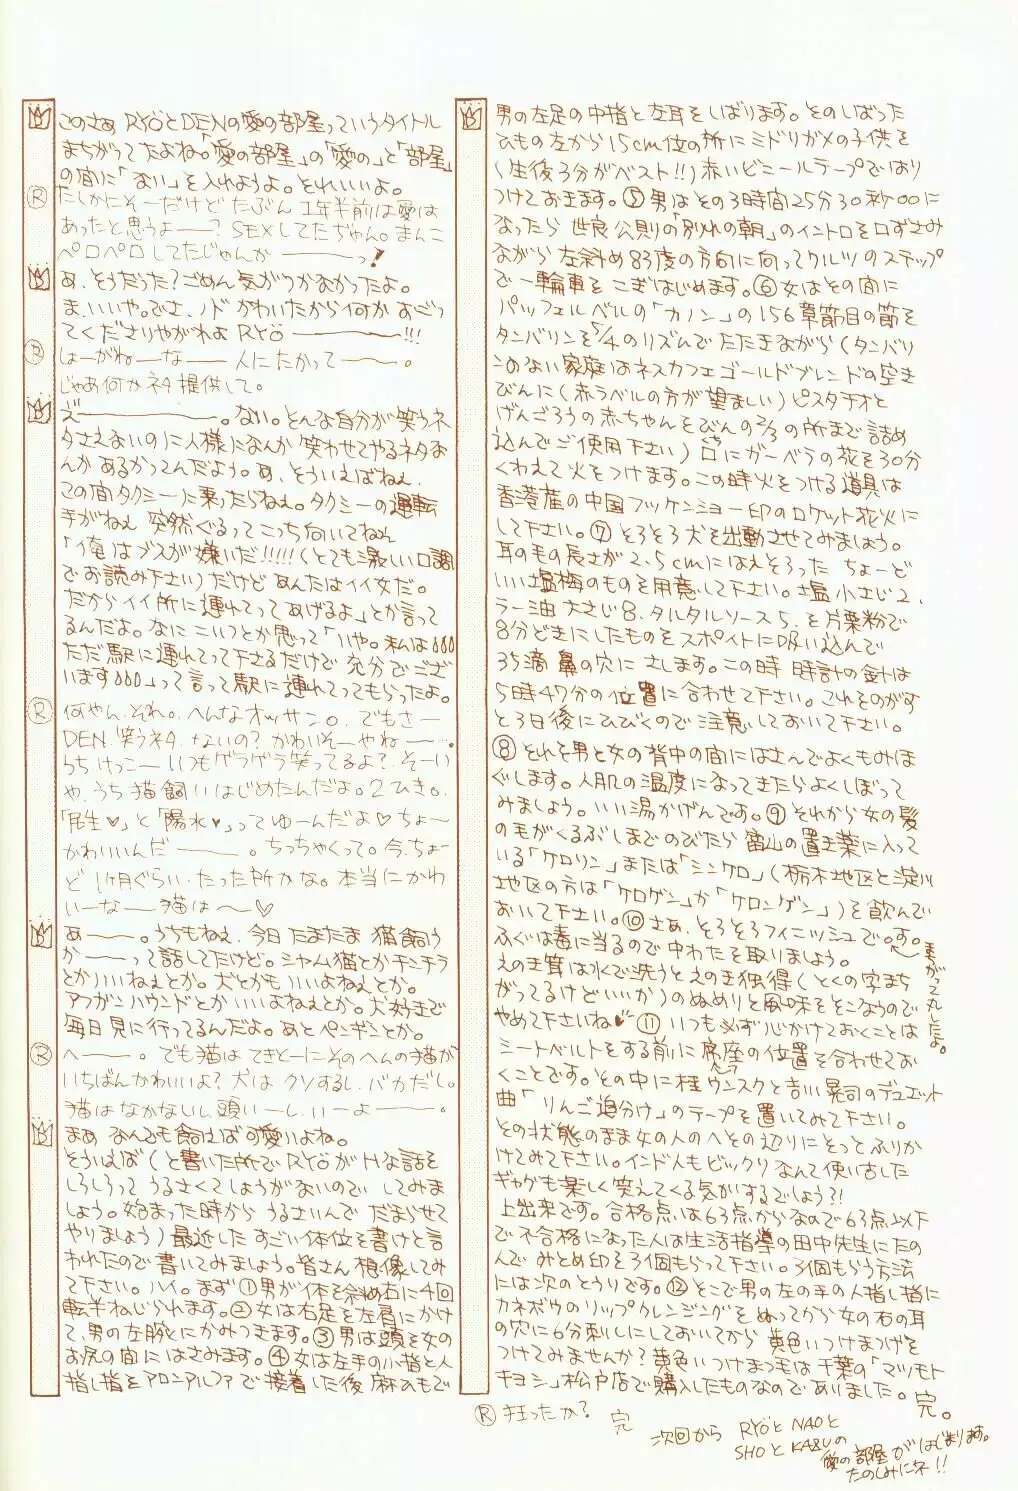 このさぁ RYÖとDENの愛の部屋っていうタイトル
まちがってたよね。「愛の部屋」の「愛の」と「部屋」
の間に「ない」を入れようよ。それいいよ。
Ⓡ
たしかにそーだけど たぶん 1年半前は愛は
あったと思うよー? SEXしてたぢゃん。まんこ
ペロペロしてたじゃんかーーっ!
あ、そうだった?ごめん気がつかなかったよ。
ま、いいや。でさ、ノド かわいたから何か おごっ
てくださりやがれよ RYÖーーー!!!
Ⓡ
しょーがねーなー 人にたかってーー。
じゃあ何かネタ提供して。
えーーーー。ない。そんな自分が笑うネ
タさえないのに人様になんか 笑わせてやるネタな
んか あるかってんだよう。あ、そういえばねぇ
この間タクシーに乗ったらねぇ。タクシーの運転
手がねぇ 突然ぐるってこっち向いてねぇ
「俺はブスが嫌いだ!!!!!(とても激しい口調
でお読み下さい)だけど あんたはイイ女だ。
だからイイ所に連れてってあげるよ」とか言って
るんだよ。なにこいつとか思って「いや。私は
ただ駅に連れてって下さるだけで 充分でござ
います」って言って駅に連れてってもらったよ。
Ⓡ
何やん、それ。へんなオッサン。でもさー
DEN、笑うネタ、ないの? かわいそーやねーー…
うちけっこーいつもゲラゲラ笑ってるよ?そーい
や、うち猫飼いはじめたんだよ。2ひき。
「民生♥」と「陽水♥」ってゆーんだよ♡ちょ〜
かわいいんだーー。ちっちゃくって。今、ちょー
ど 1ヶ月ぐらい、たった所かな。本当にかわ
いーなー猫は〜♡
あーー。うちもねぇ、今日 たまたま 猫飼う
かーーって話してたけど。シャム猫とかチンチラ
とかいいねぇとか。犬とかも いいよねぇとか。
アフガンハウンドとか いいよねぇとか。犬好きで
毎日見に行ってるんだよ。あと ペンギンとか。
Ⓡ
へーー。でも猫は てきとーにそのへんの猫が
いちばんかわいいよ?犬は クソするし、バカだし。
猫は なかないし、頭いーし、いーよーーー。
まぁ なんでも飼えば可愛いよね。
そういえば(と書いた所でRYÖがHな話を
しろしろって うるさくてしょうがないので してみま
しょう。始まった時から うるさいんで だまらせて
やりましょう)最近した すごい体位を書けと言
われたので書いてみましょう。皆さん想像してみ
て下さい。ハイ。まず①男が体を斜め右に4回
転半ねじられます。②女は右足を左肩にかけ
て、男の左腕にかみつきます。③男は頭を女の
お尻の間にはさみます。④女は左手の小指と人
指し指をアロンアルファで接着した後 麻ひもで
男の左足の中指と左耳をしばります。そのしばった
ひもの左から15cm位の所にミドリガメの子供を
(生後3分がベスト!!)赤いビニールテープではり
つけておきます。⑤男はその3時間25分30秒00に
なったら 世良公則の「別れの朝」のイントロを口ずさみ
ながら 左斜め83度の方向に向ってワルツのステップ
で一輪車をこぎはじめます。⑥女はその間に
パッフェルベルの「カノン」の156章節目の節を
タンバリンを5/4のリズムで たたきながら(タンバリ
ンのない家庭はネスカフェゴールドブレンドの空き
びんに(赤ラベルの方が望ましい)ピスタチオと
げんごろうの赤ちゃんをびんの2/3の所まで詰め
込んでご使用下さい)口にガーベラの花を30分
くわえて火をつけます。この時火をつける道具は
香港産の中国フッケンショー印のロケット花火に
して下さい。⑦そろそろ犬を出動させてみましょう。
耳の毛の長さが2.5cmにはえそろった ちょーど
いい塩梅のものを用意して下さい。塩 小さじ2、
ラー油 大さじ8、タルタルソース5、を片栗粉で
8分どきにしたものをスポイトに吸い込んで
35滴 鼻の穴に さします。この時 時計の針は
5時47分の位置に合わせて下さい。これをのがす
と3日後にひびくので注意しておいて下さい。
⑧それを男と女の背中の間にはさんでよくもみほ
ぐします。人肌の温度になってきたらよくしぼって
みましょう。いい湯かげんです。⑨それから女の髪
の毛がくるぶしまでのびたら 富山の置き薬に入って
いる「ケロリン」または「シンケロ」(栃木地区と淀川
地区の方は「ケロゲン」か「ケロンゲン」)を飲んで
おいて下さい。⑩さあ、そろそろフィニッシュです。
ふぐは毒に当るので中わたを取りましょう。
えのき茸は水で洗うとえのき独得(とくの字まち
がってるけどいいか)のぬめりと風味をそこなうので
やめて下さいね♥ ⑪いつも必ず心がけておくことは
シートベルトをする前に座席の位置を合わせてお
くことです。その中に桂ウンスクと吉川晃司のデュエット
曲「りんご追分け」のテープを置いてみて下さい。
その状態のまま女の人のへその辺りにそっとふりか
けてみて下さい。インド人もビックリなんて使い古した
ギャグも楽しく笑えてくる気がするでしょう?!
上出来です。合格点は63点からなので63点以下
で不合格になった人は生活指導の田中先生にたの
んで みとめ印を3個もらって下さい。3個もらう方法
には次のとうりです。⑫そこで男の左の手の人指し指に
カネボウのリップクレンジングを ぬってから女の右の耳
の穴に6分刺しにしておいてから 黄色いつけまつげを
つけてみませんか?黄色いつけまつ毛は千葉の「マツモト
キヨシ」松戸店で購入したものなのでありました。完。
Ⓡ 狂ったか? 完
次回から RYÖとNAOと
SHOとKAZUの
愛の部屋がはじまります。
たのしみにネ!!